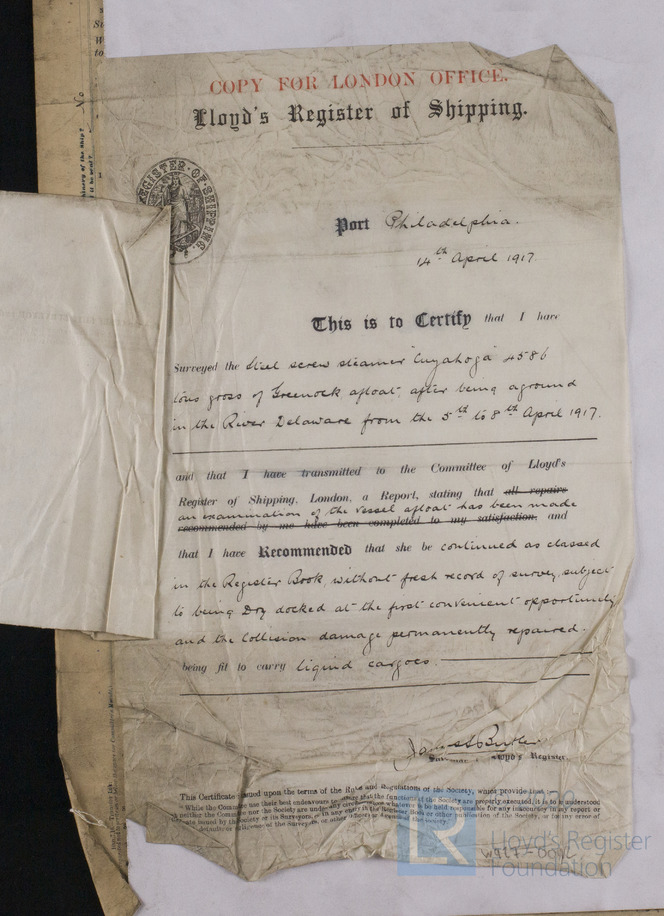 COPY FOR LONDON OFFICE.
Lloyd's Register of Shipping.
REGISTER·OF·SHIPPING.
Port Philadelphia.
14th April 1917.
This is to Certify that I have
Surveyed the Steel screw steamer "Cuyahoga" 4586
tons gross of Greenock afloat, after being aground
in the River Delaware from the 5th to 8th April 1917.
and that I have transmitted to the Committee of Lloyd's
Register of Shipping, London, a Report, stating that all repairs
an examination of the vessel afloat has been made
recommended by me have been completed to my satisfaction, and
that I have Recommended that she be continued as classed
in the Register Book, without fresh record of survey, subject
to being Dry docked at the first convenient opportunity
and the Collision damage permanently repaired.
being fit to carry liquid cargoes.
Lloyd's Register.
This Certificate issued upon the terms of the Rules and Regulations of the Society, which provide that:—
"While the Committee use their best endeavours to ensure that the functions of the Society are properly executed, it is to be understood
neither the Committee nor the Society are under any circumstances whatever to be held responsible for any inaccuracy in any report or
issued by the Society or its Surveyors, or in any entry in the Register Book or other publication of the Society, or for any error of
of the Surveyors, or other Officers or Agents of the Society."
Lloyd's Register
Foundation